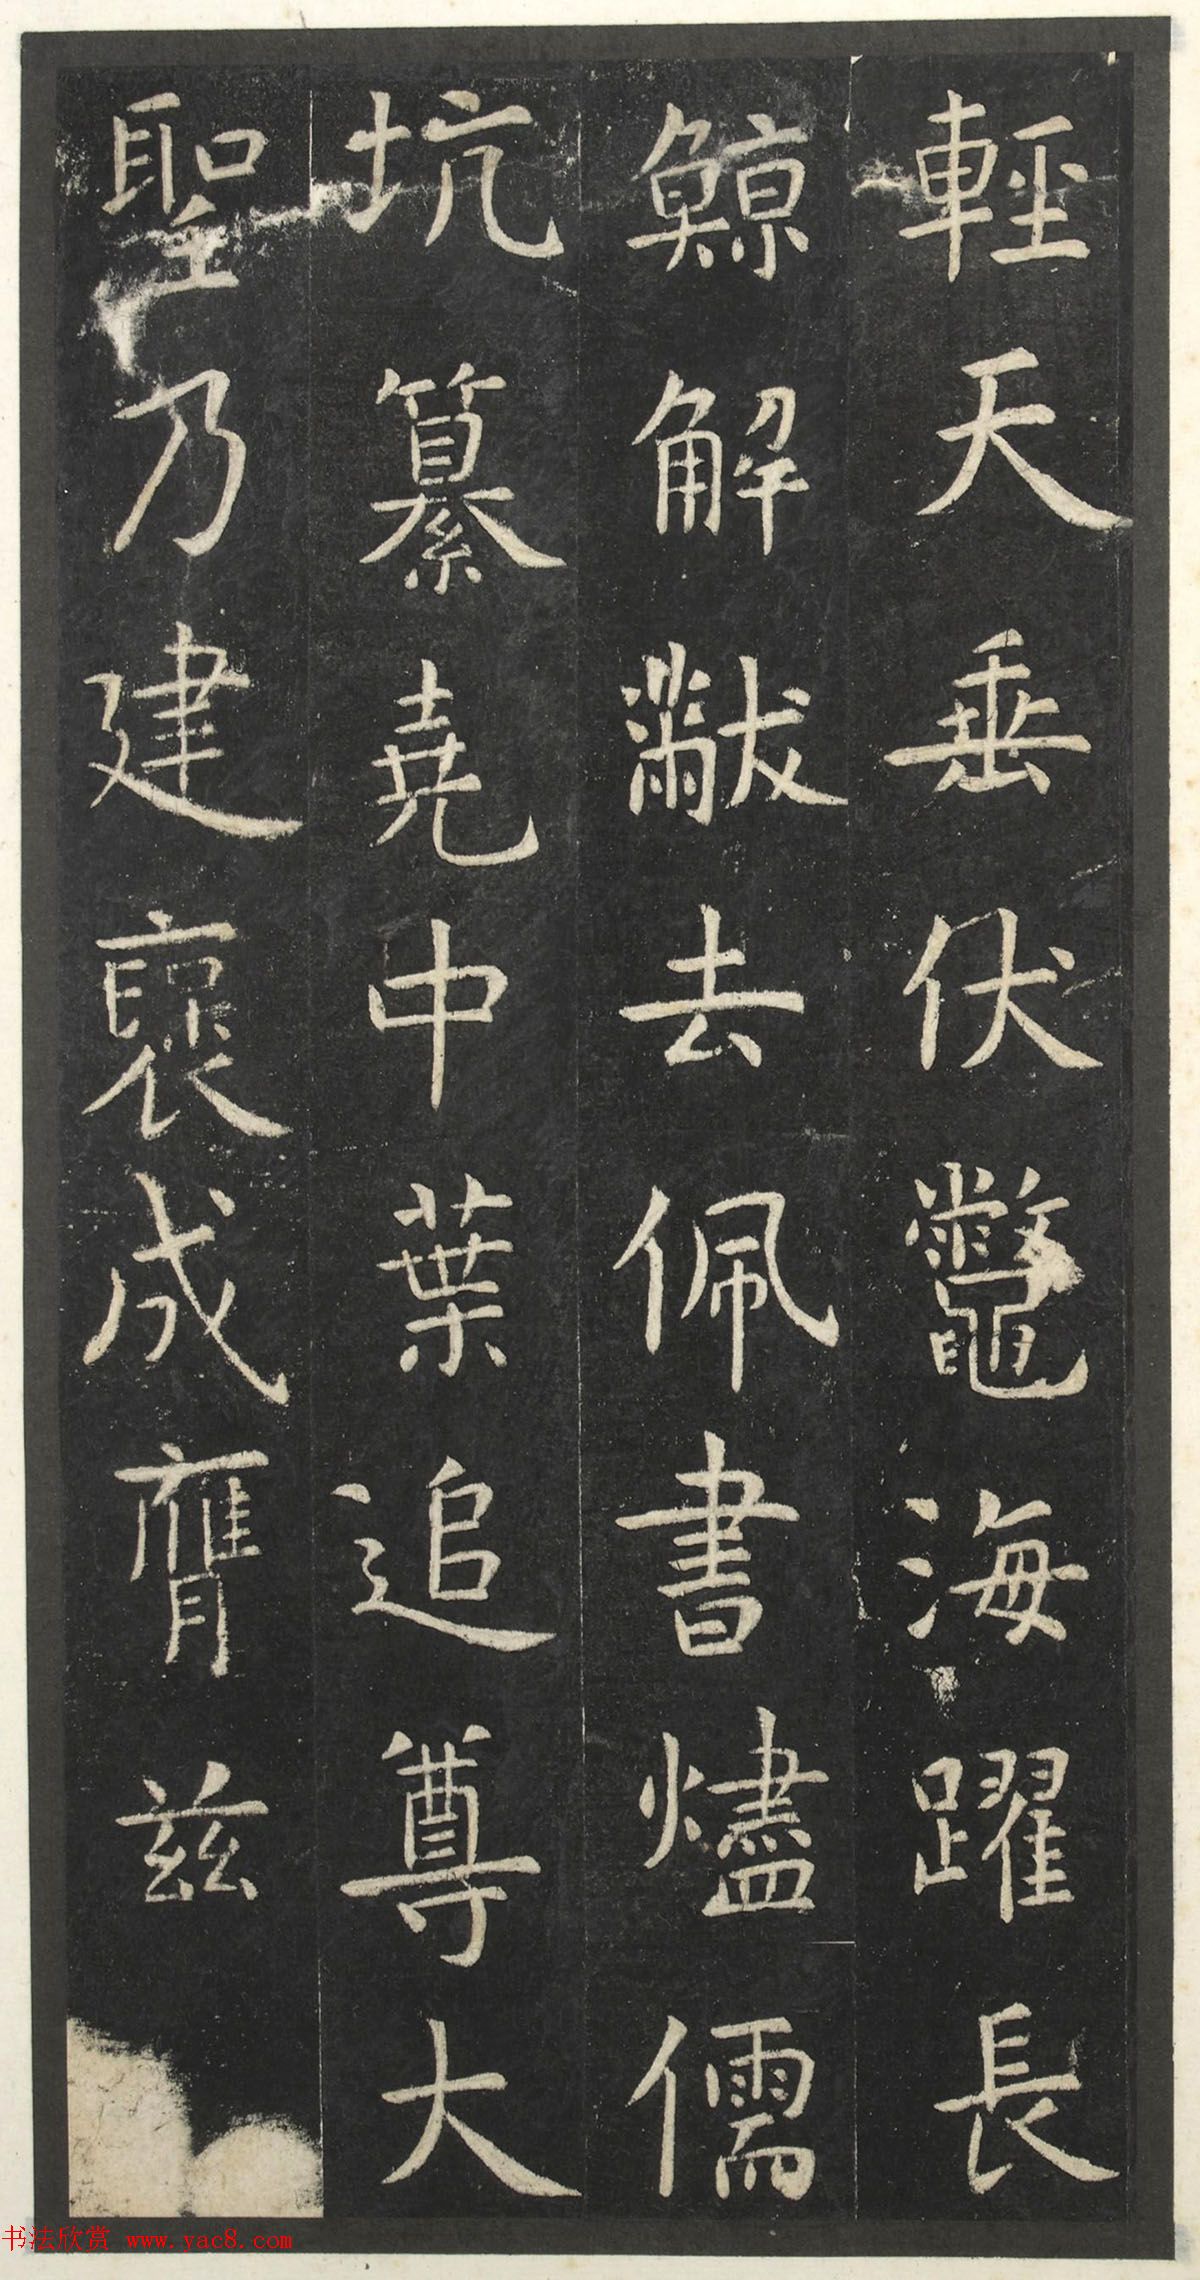 輕天垂伏鼈海躍長
鯨解黻去佩書燼儒
坑纂堯中葉追尊大
聖乃建襃成膺兹
书法欣赏 www.yac8.com